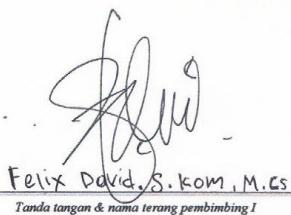 Felix David, S.Kom, M.Cs
Tanda tangan & nama terang pembimbing I